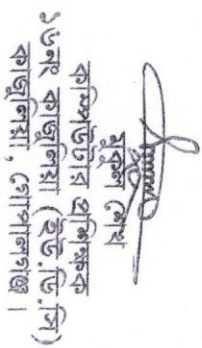 মুকুল শেখ
কম্পিউটার প্রশিক্ষক
১৬নং কাজুলিয়া (ইউ.ডি.সি)
কাজুলিয়া, গোপালগঞ্জ।